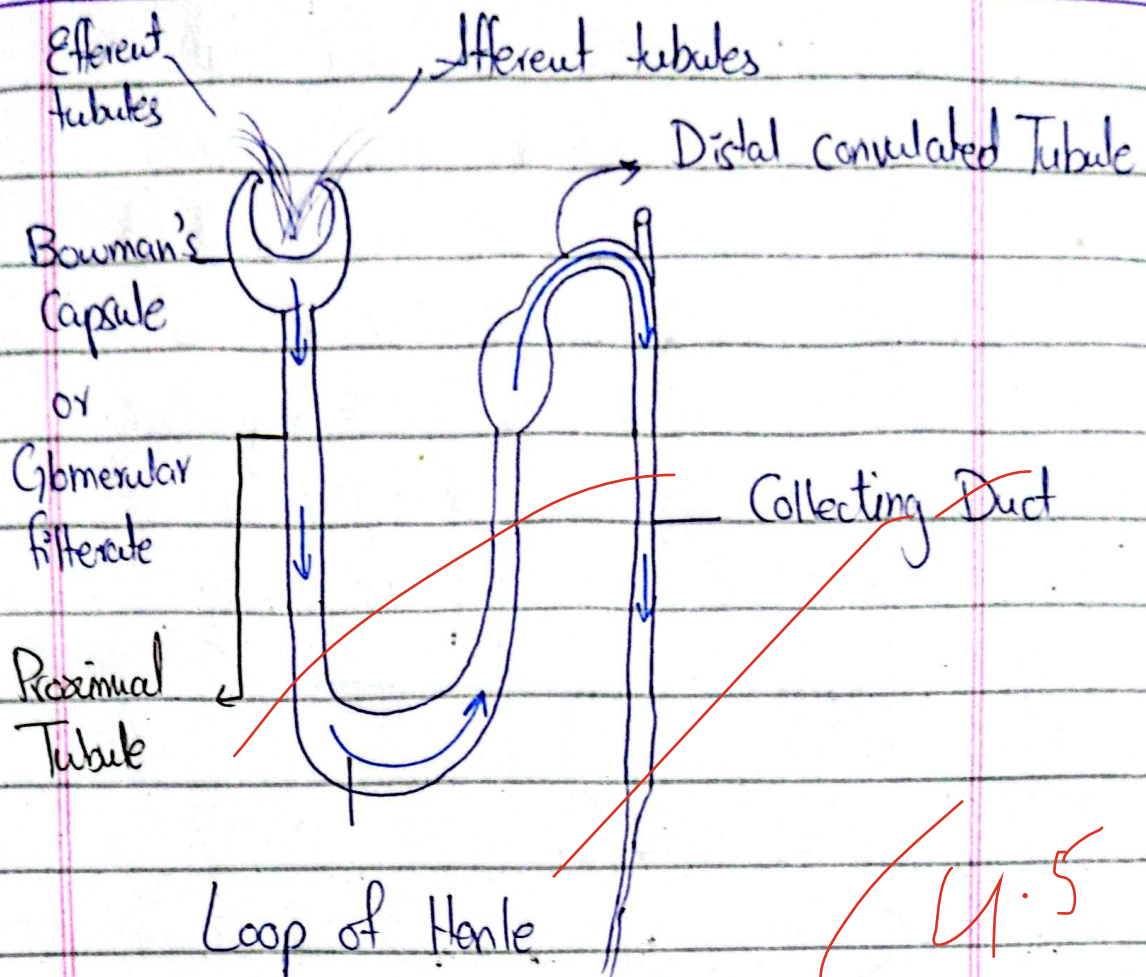 Efferent
tubules
Afferent tubules
Distal convulated Tubule
Bowman's
Capsule
or
Glomerular
filterate
Collecting Duct
Proximual
Tubule
Loop of Henle
4.5